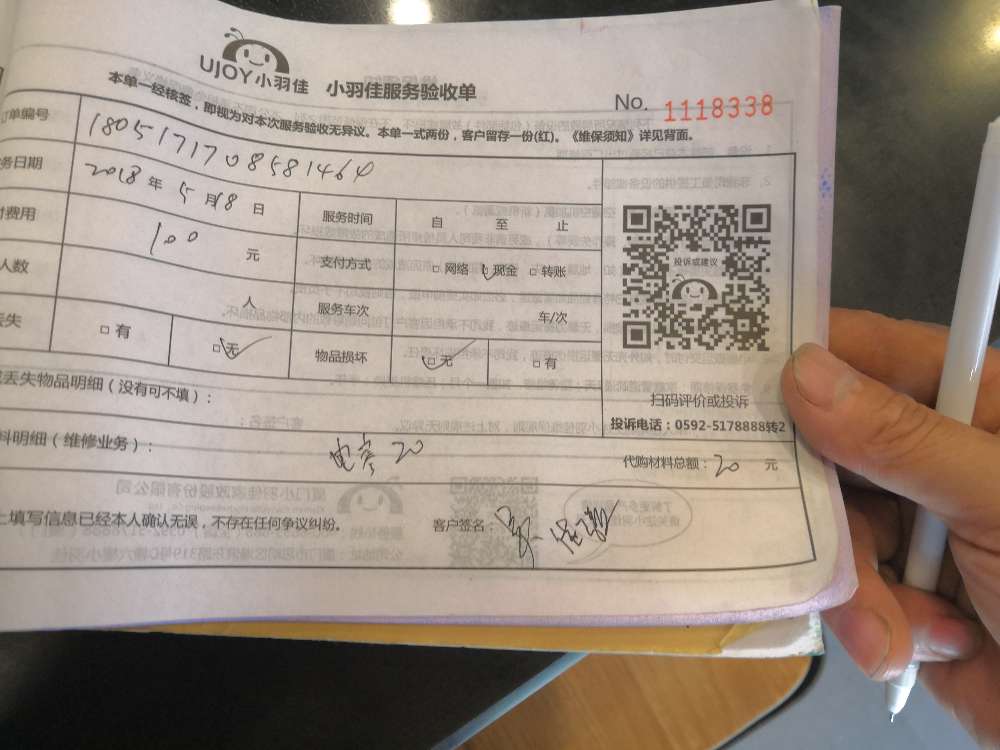 UJOY小羽佳 小羽佳服务验收单
本单一经核签，即视为对本次服务验收无异议。本单一式两份，客户留存一份(红)。《维保须知》详见背面。
No. 1118338
订单编号 1805171708581464
务日期 2018年5月18日 服务时间 自 至 止
付费用 100元 支付方式 □网络 □现金 □转账
人数 人 服务车次 车/次
丢失 □有 □无 物品损坏 □无 □有
投诉或建议
扫码评价或投诉
投诉电话：0592-5178888转2
丢失物品明细（没有可不填）：
料明细（维修业务）： 电容20 代购材料总额：20 元
上填写信息已经本人确认无误，不存在任何争议纠纷。 客户签名：